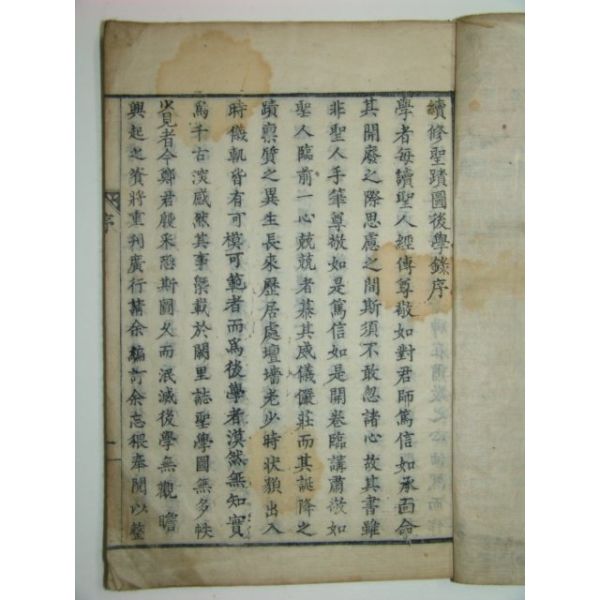 續修聖蹟圖後學錄序
學者每讀聖人經傳尊敬如對君師篤信如承面命
其開廢之際思慮之間斯須不敢忽諸心故其書雖
非聖人手筆尊敬如是篤信如是開卷臨講肅敬如
聖人臨前一心兢兢者慕其威儀儼莊而其誕降之
蹟禀質之異生長來歷居處壇墻老少時狀類出入
時儀軌皆有可模可範者而爲後學者漠然無知實
爲千古淡感然其事槩載於闕里誌聖學圖無多帙
必見者今鄭君殷采恐斯圖久而泯滅後學無觀瞻
興起之資將重刊廣行請余編訂余忘猥奉閱以整
序
一